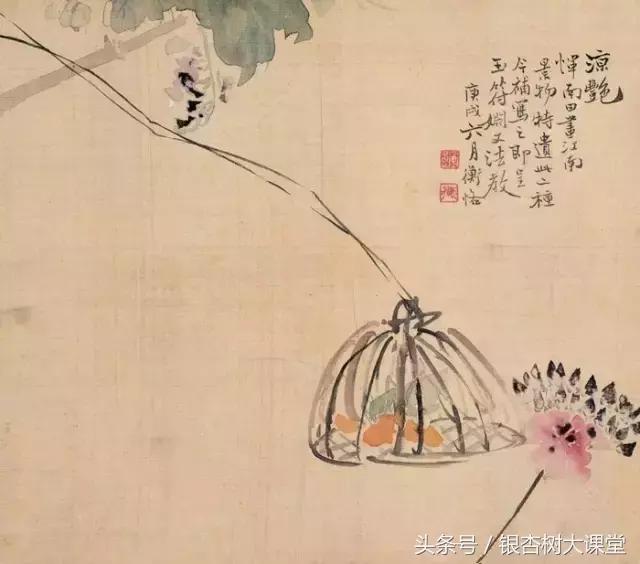 涼艷
惲南田畫江南
景物特遺此二種
今補寫之即呈
玉符姻丈法教
庚戌六月衡恪
头条号 / 银杏树大课堂